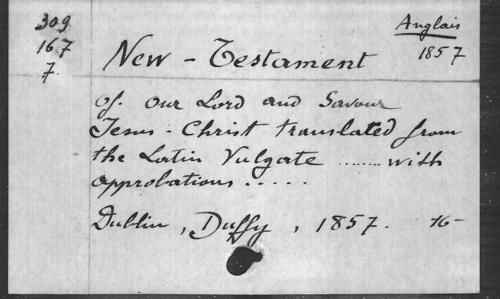 309
16.7
7.
Anglais
1857
New - Testament
of. our Lord and Savour
Jesus - Christ translated from
the Latin Vulgate ........ with
approbations .....
Dublin, Duffy, 1857. 16-